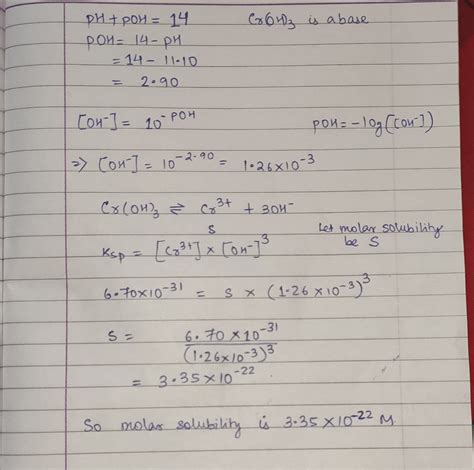 pH + pOH = 14 Cr(OH)₃ is a base
pOH = 14 - pH
= 14 - 11.10
= 2.90
[OH⁻] = 10^-pOH pOH = -log([OH⁻])
=> [OH⁻] = 10^-2.90 = 1.26 × 10^-3
Cr(OH)₃ ⇌ Cr³⁺ + 3OH⁻
S Let molar solubility
be S
Ksp = [Cr³⁺] × [OH⁻]³
6.70 × 10^-31 = S × (1.26 × 10^-3)³
S = 6.70 × 10^-31
(1.26 × 10^-3)³
= 3.35 × 10^-22
So molar solubility is 3.35 × 10^-22 M.